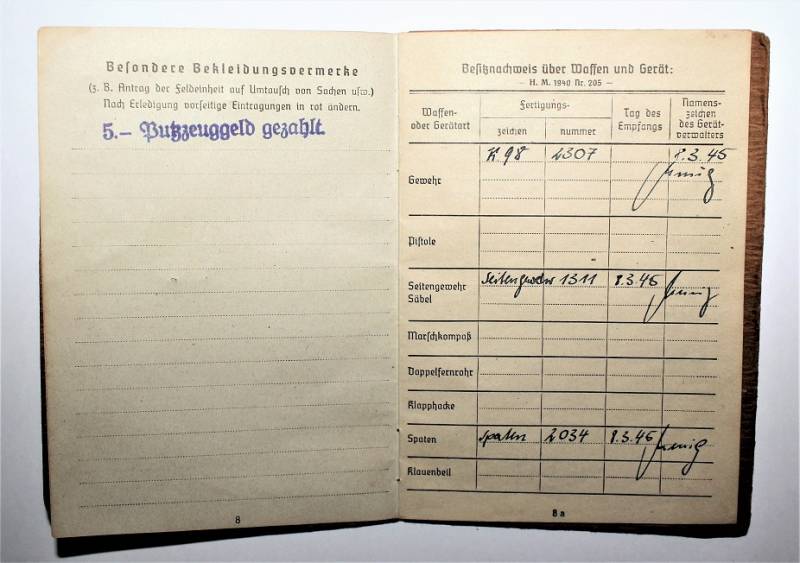 Besondere Bekleidungsvermerke
(z. B. Antrag der Feldeinheit auf Umtausch von Sachen usw.)
Nach Erledigung vorseitige Eintragungen in rot ändern.
5.– Putzzeuggeld gezahlt.
8
Besitznachweis über Waffen und Gerät:
– H. M. 1940 Nr. 205 –
Waffen- oder Gerätart
Fertigungs-
zeichen nummer
Tag des Empfangs
Namens- zeichen des Gerät- verwalters
Gewehr K 98 2307 8.3.45
Pistole
Seitengewehr Säbel Seitengewehr 1311 8.3.45
Marschkompaß
Doppelfernrohr
Klapphacke
Spaten Spaten 2034 8.3.45
Klauenbeil
8a